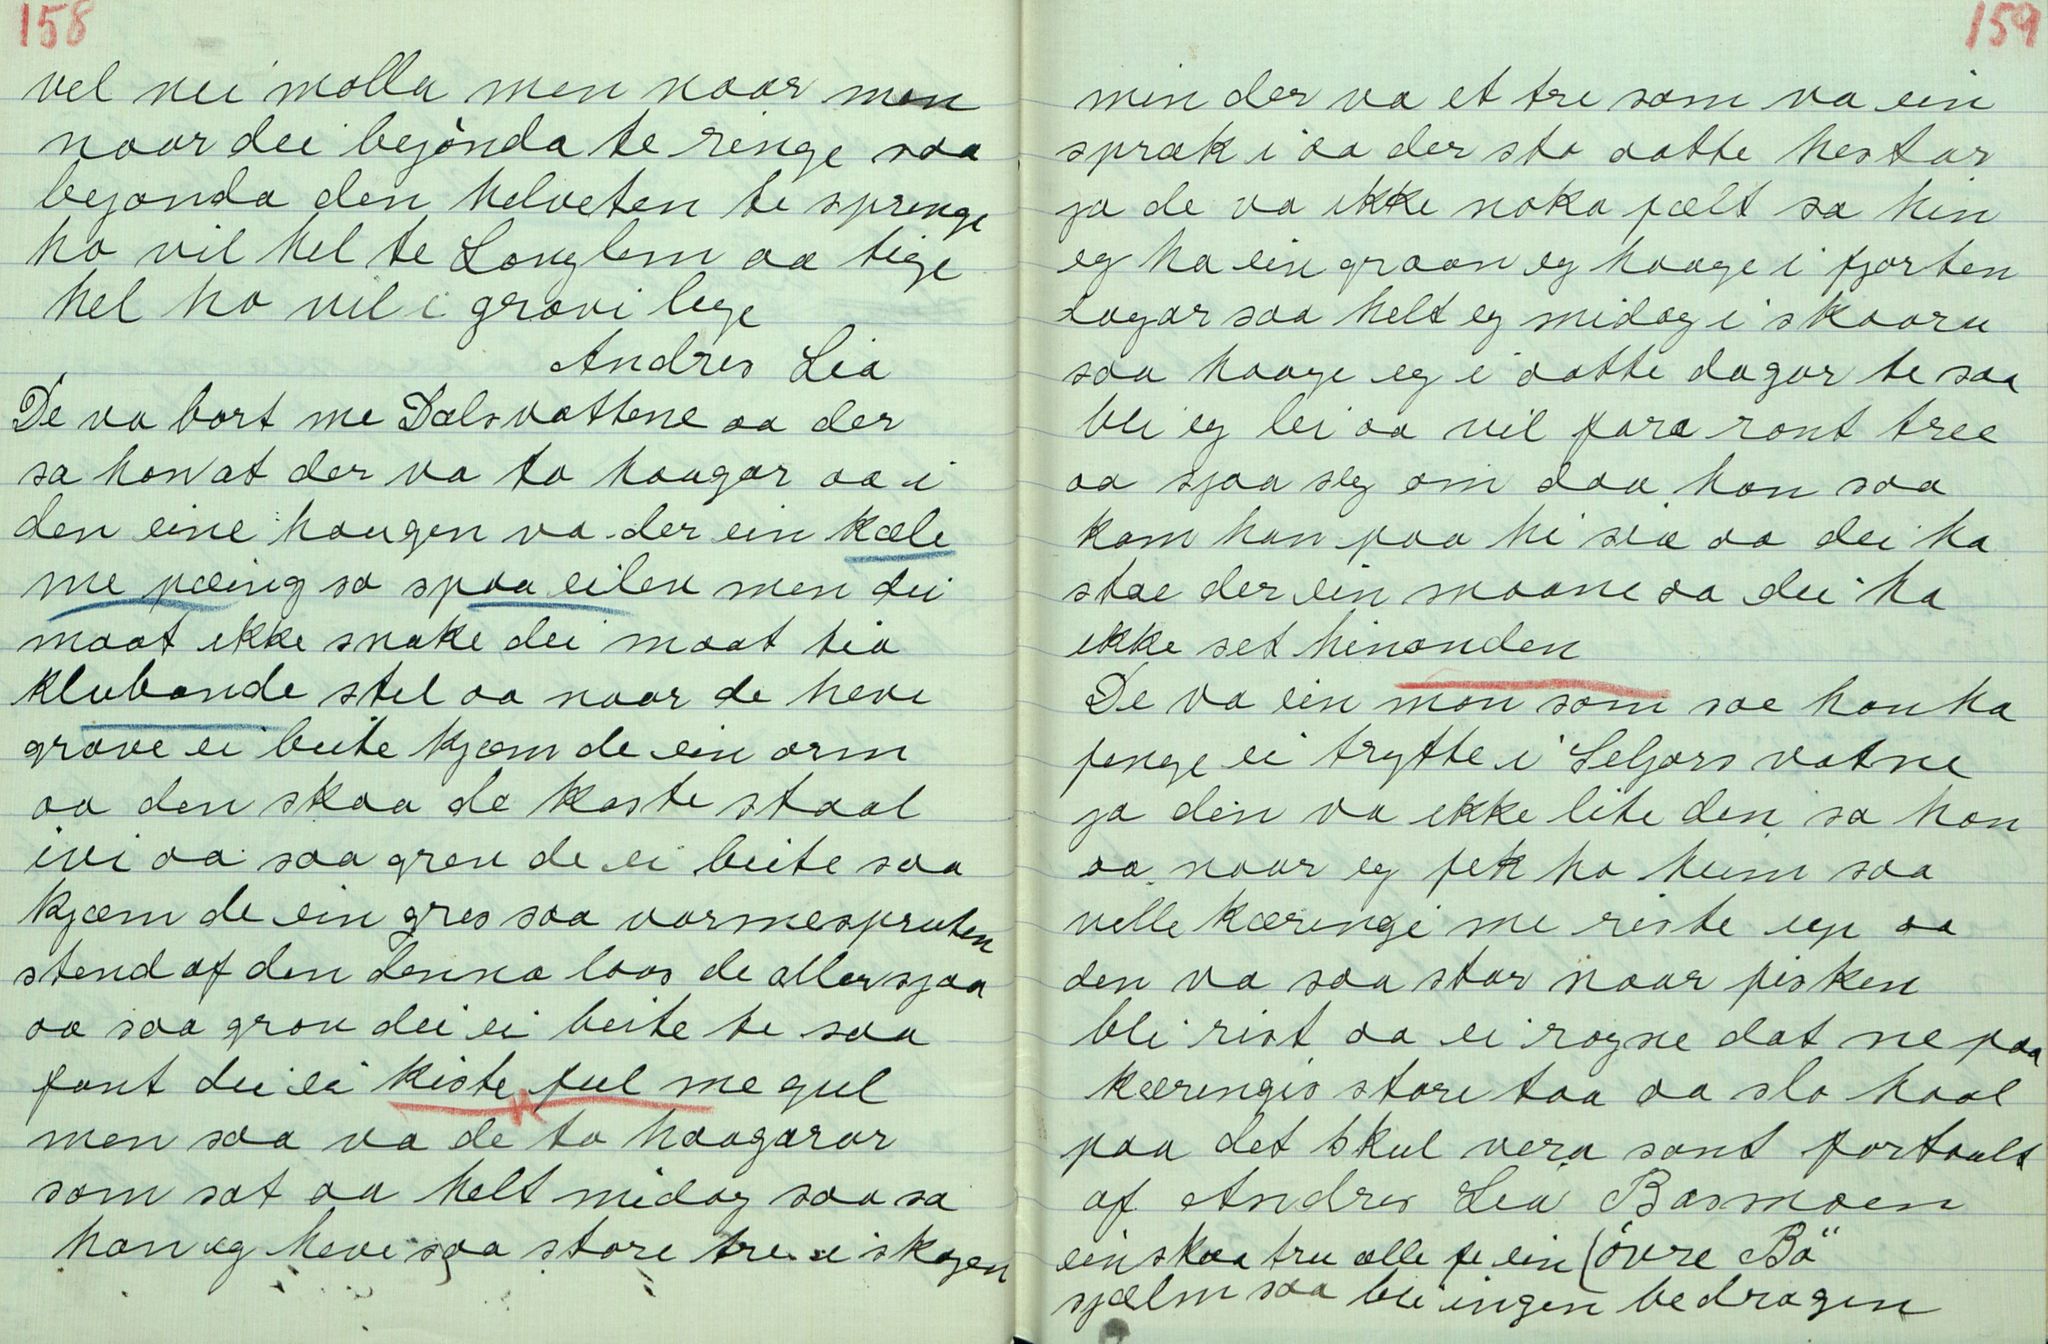 158
vel nei molla men naar man
naar dei bejønda te ringe saa
bejonda den helveten te springe
ho vil hel te Langlem aa tige
hel ho vil i gravi lige
Andres Lia
De va bort me Dalsvattene aa der
sa hon at der va to haugar aa i
den eine haugen va der ein kæle
me pæing so spaa eilen men dei
maat ikke snake dei maat tia
klubande stel aa naar de heve
grave ei beite kjæm de ein orm
aa den skaa de kaste staal
ivi aa saa grev de ei beite saa
kjæm de ein gres saa varmespruten
stend af den denna laas de aller sjaa
aa saa grov dei ei beite te saa
fant dei ei kiste ful me gul
men saa va de to haagarar
som sat aa helt midag saa sa
han eg heve saa store tre i skogen
159
min der va et tre som va ein
spræk i aa der sto aatte hestar
ja de va ikke noka fælt sa hin
eg ha ein graan eg haage i fjorten
dagar saa helt eg midag i skaaru
saa haage eg i aatte dagar te saa
blei eg lei aa vil fara ront tree
aa sjaa seg om daa han saa
kom han paa hi sia aa dei ha
stae der ein maane aa dei ha
ikke set hinanden
De va ein mon som sae han ha
fenge ei trytte i Seljors vatne
ja den va ikke lite den sa han
aa naar eg fek ho heim saa
velle kæringi me riste up aa
den va saa stor naar fisken
bli rist aa ei rogne dat ne paa
kæringis store taa aa slo haal
paa det skul vera sant fortaalt
af Andres Lia Basmoen
ein skaa tru alle fe ein (øvre Bø"
sjælm saa blei ingen bedragen